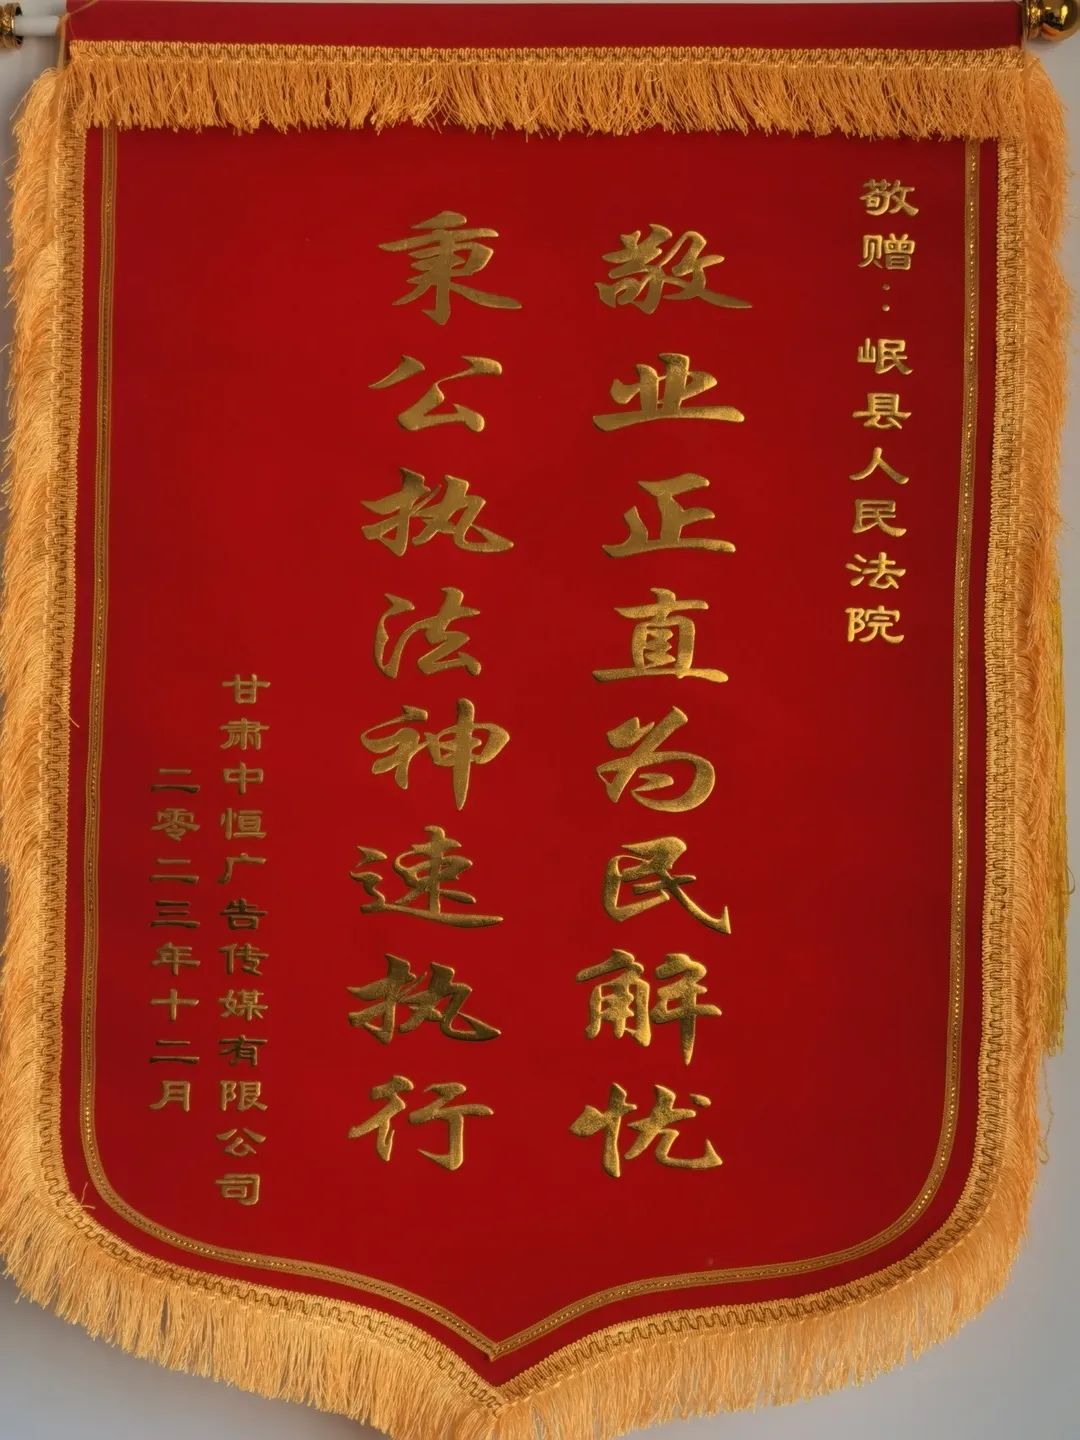 敬赠：岷县人民法院
敬业正直为民解忧
秉公执法神速执行
甘肃中恒广告传媒有限公司
二零二三年十二月